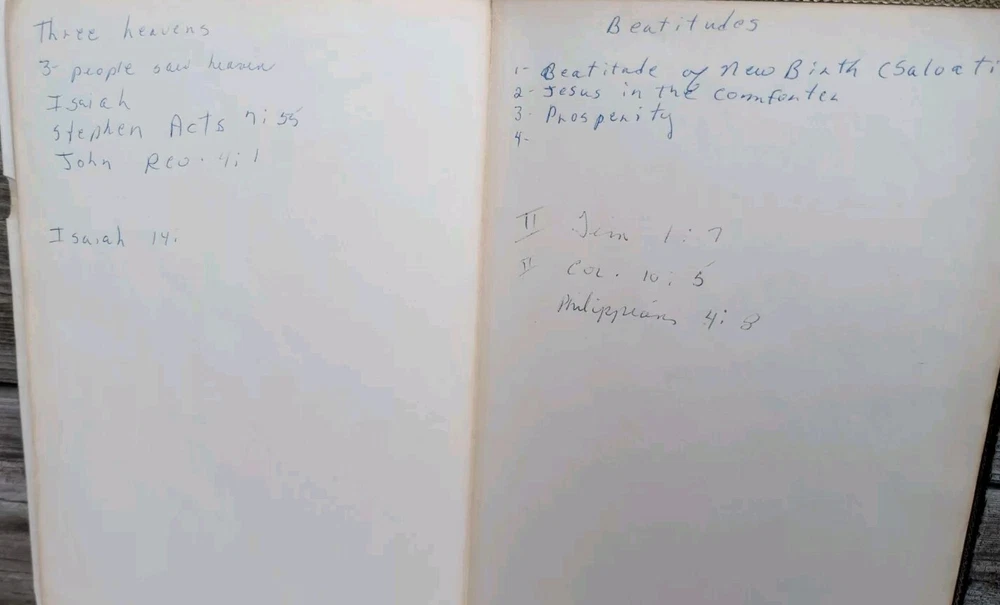 Three heavens
3- people saw heaven
Isaiah
Stephen Acts 7:55
John Rev. 4:1
Isaiah 14:
Beatitudes
1- Beatitude of New Birth (Salvati
2- Jesus in the comforter
3- Prosperity
4-
II Tim 1:7
II Cor. 10:5
Philippians 4:8